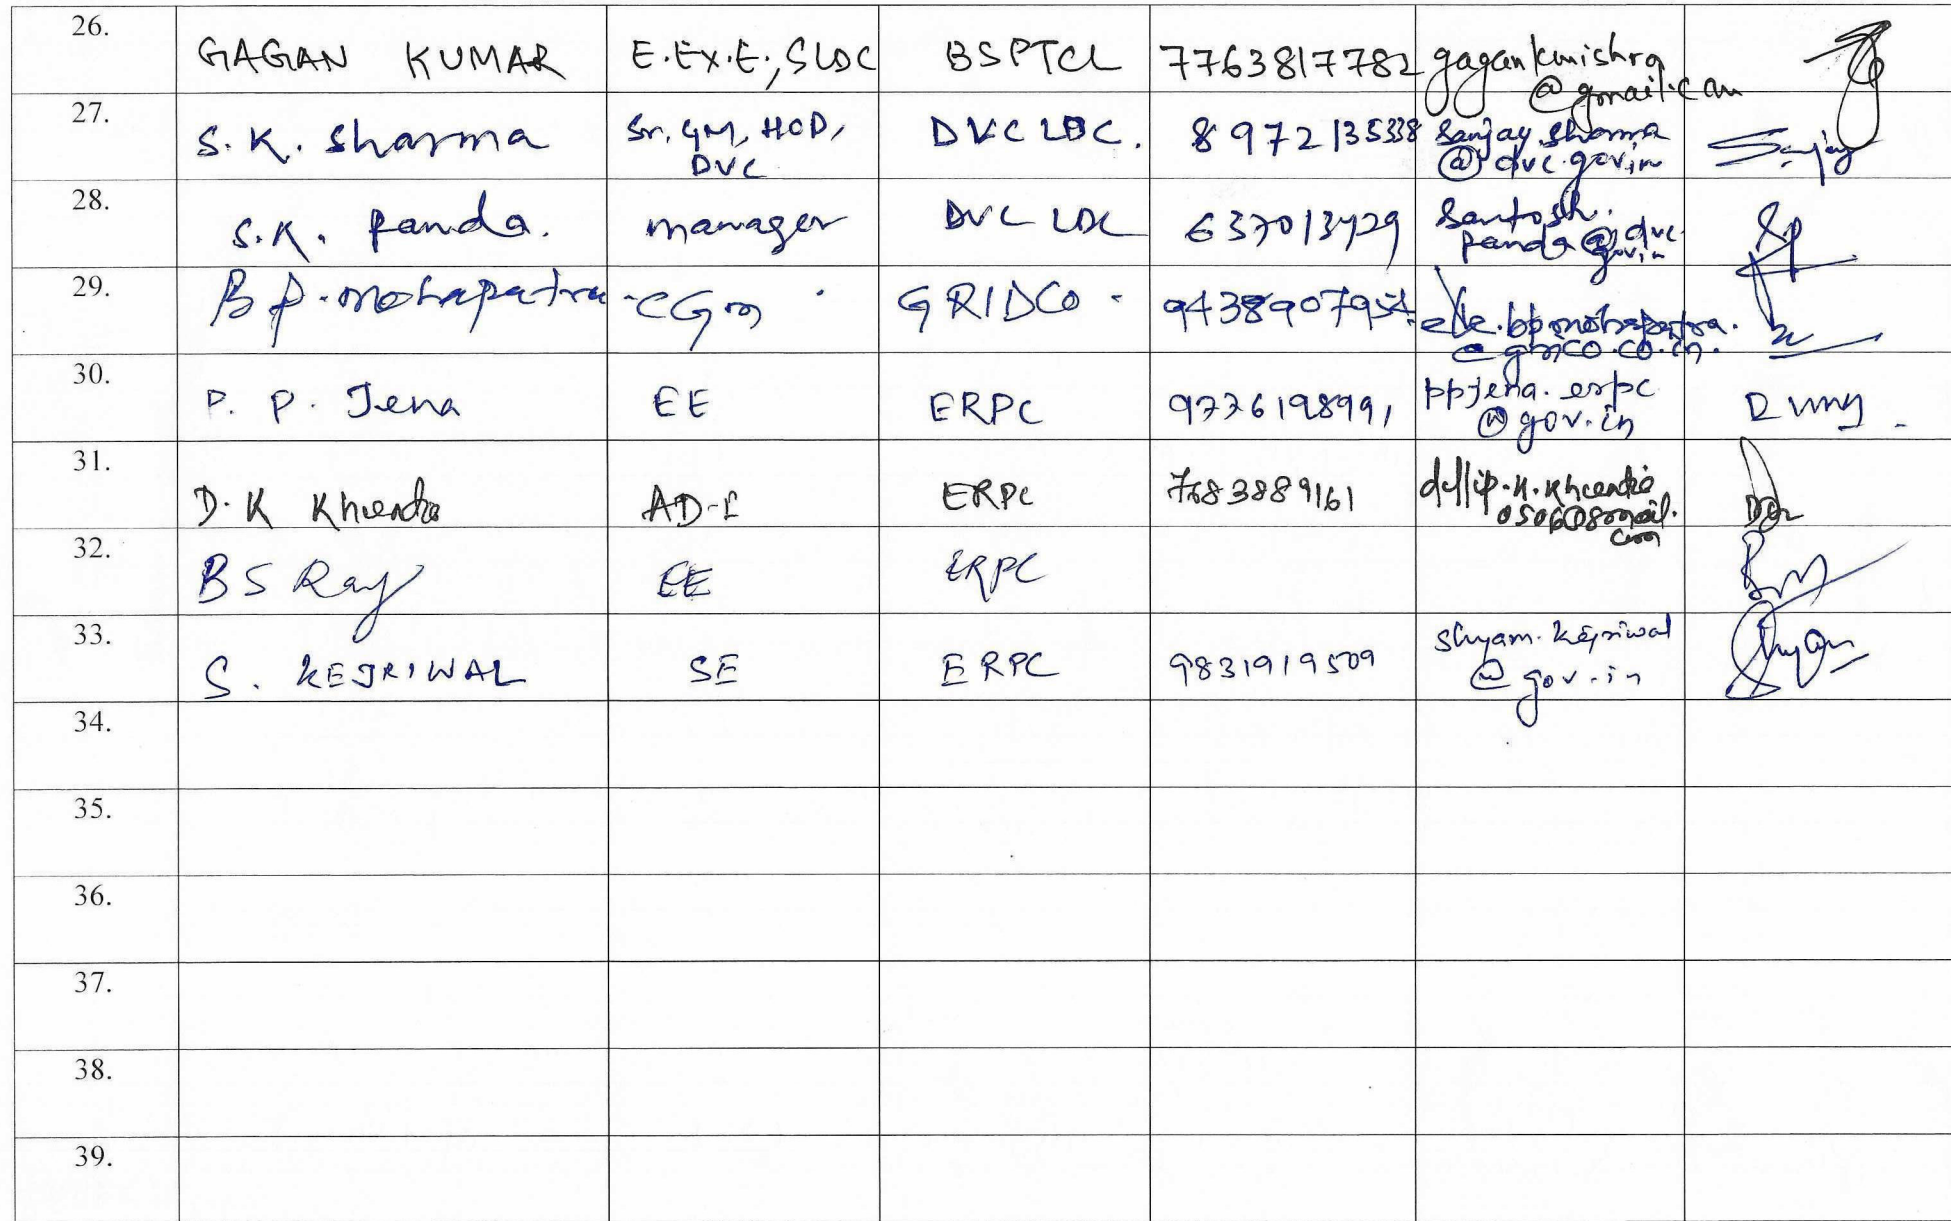 26. GAGAN KUMAR E.EX.E., SLDC BSPTCL 7763817782 gagankmishra
@gmail.com
27. S. K. Sharma Sr. GM, HOD, DVC LDC. 8972135338 Sanjay.sharma
DVC @dvc.gov.in
28. S.K. Panda. manager DVC LDC 637013429 Santosh.
panda@dvc.
gov.in
29. B P. Mohapatra - CGM GRIDCO - 9438907954 ele.bpmohapatra.
@gridco.co.in.
30. P. P. Jena EE ERPC 9776198991 ppjena.erpc
@gov.in
31. D. K Khuendia AD-I ERPC 7683889161
32. B S Ray EE ERPC
33. S. KEJRIWAL SE ERPC 9831919509 shyam.kejriwal
@gov.in
34.
35.
36.
37.
38.
39.